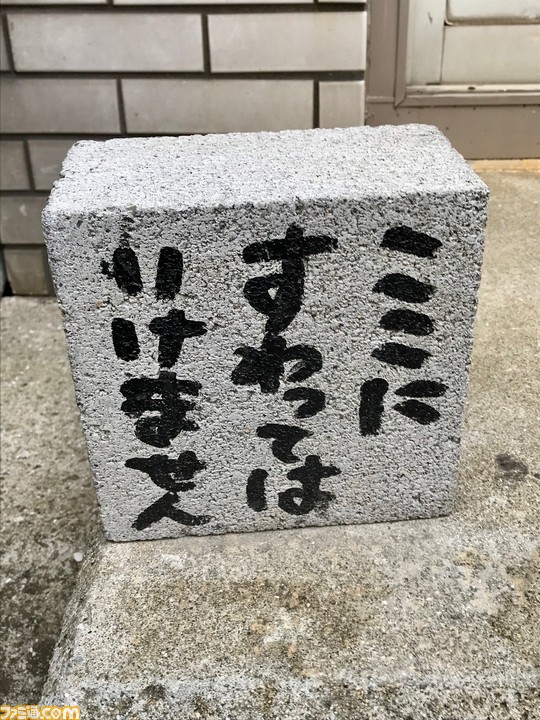 ここに
すわっては
いけません
ファミ通.com